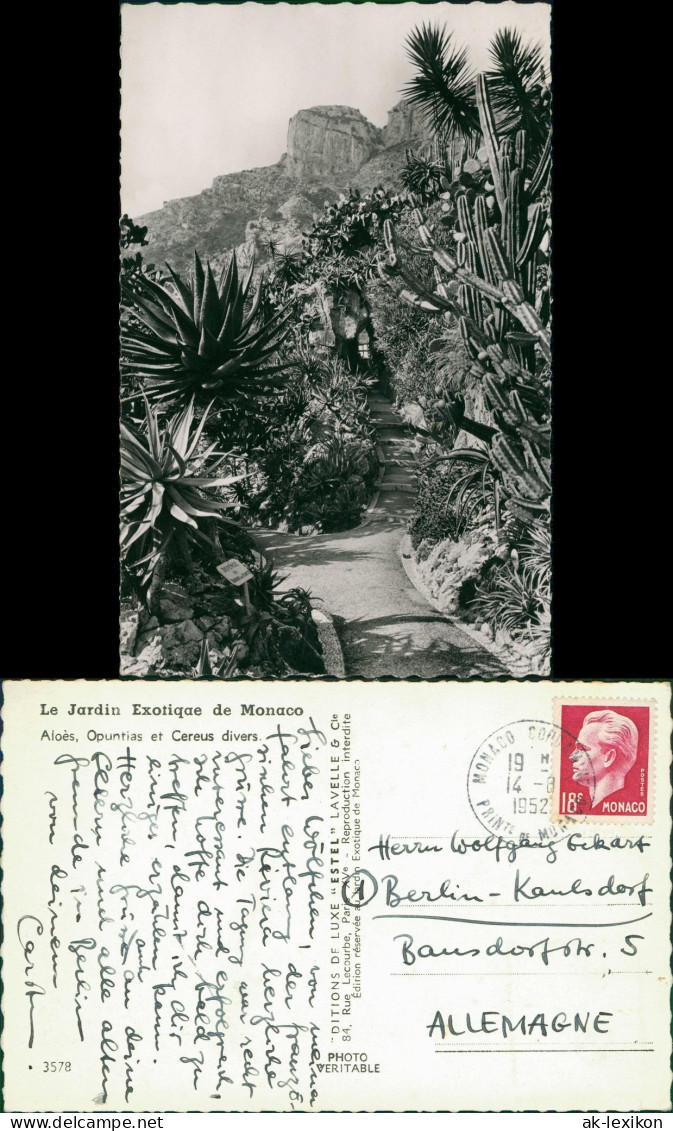 Le Jardin Exotique de Monaco
Aloès, Opuntias et Cereus divers.
Lieber Wölfchen, von meiner
Fahrt entlang der französi-
schen Riviera herzliche
Grüsse. Die Tagung war recht
interessant und erfolgreich,
ich hoffe dich bald zu
treffen, damit ich dir
einiges erzählen kann.
Herzliche Grüsse an deine
Eltern und alle alten
Freunde in Berlin
von deinem
3578
"EDITIONS DE LUXE "ESTEL" LAVELLE & Cie
84, Rue Lecourbe, Paris - Reproduction interdite
Edition réservée au Jardin Exotique de Monaco
PHOTO
VERITABLE
MONACO
19 H
14 -8
1952
PRINTé DE MONACO
POSTES
18F MONACO
Herrn Wolfgang Eckart
① Berlin-Kaulsdorf
Bausdorfstr. 5
ALLEMAGNE
© ak-lexikon.de
ak-lexikon